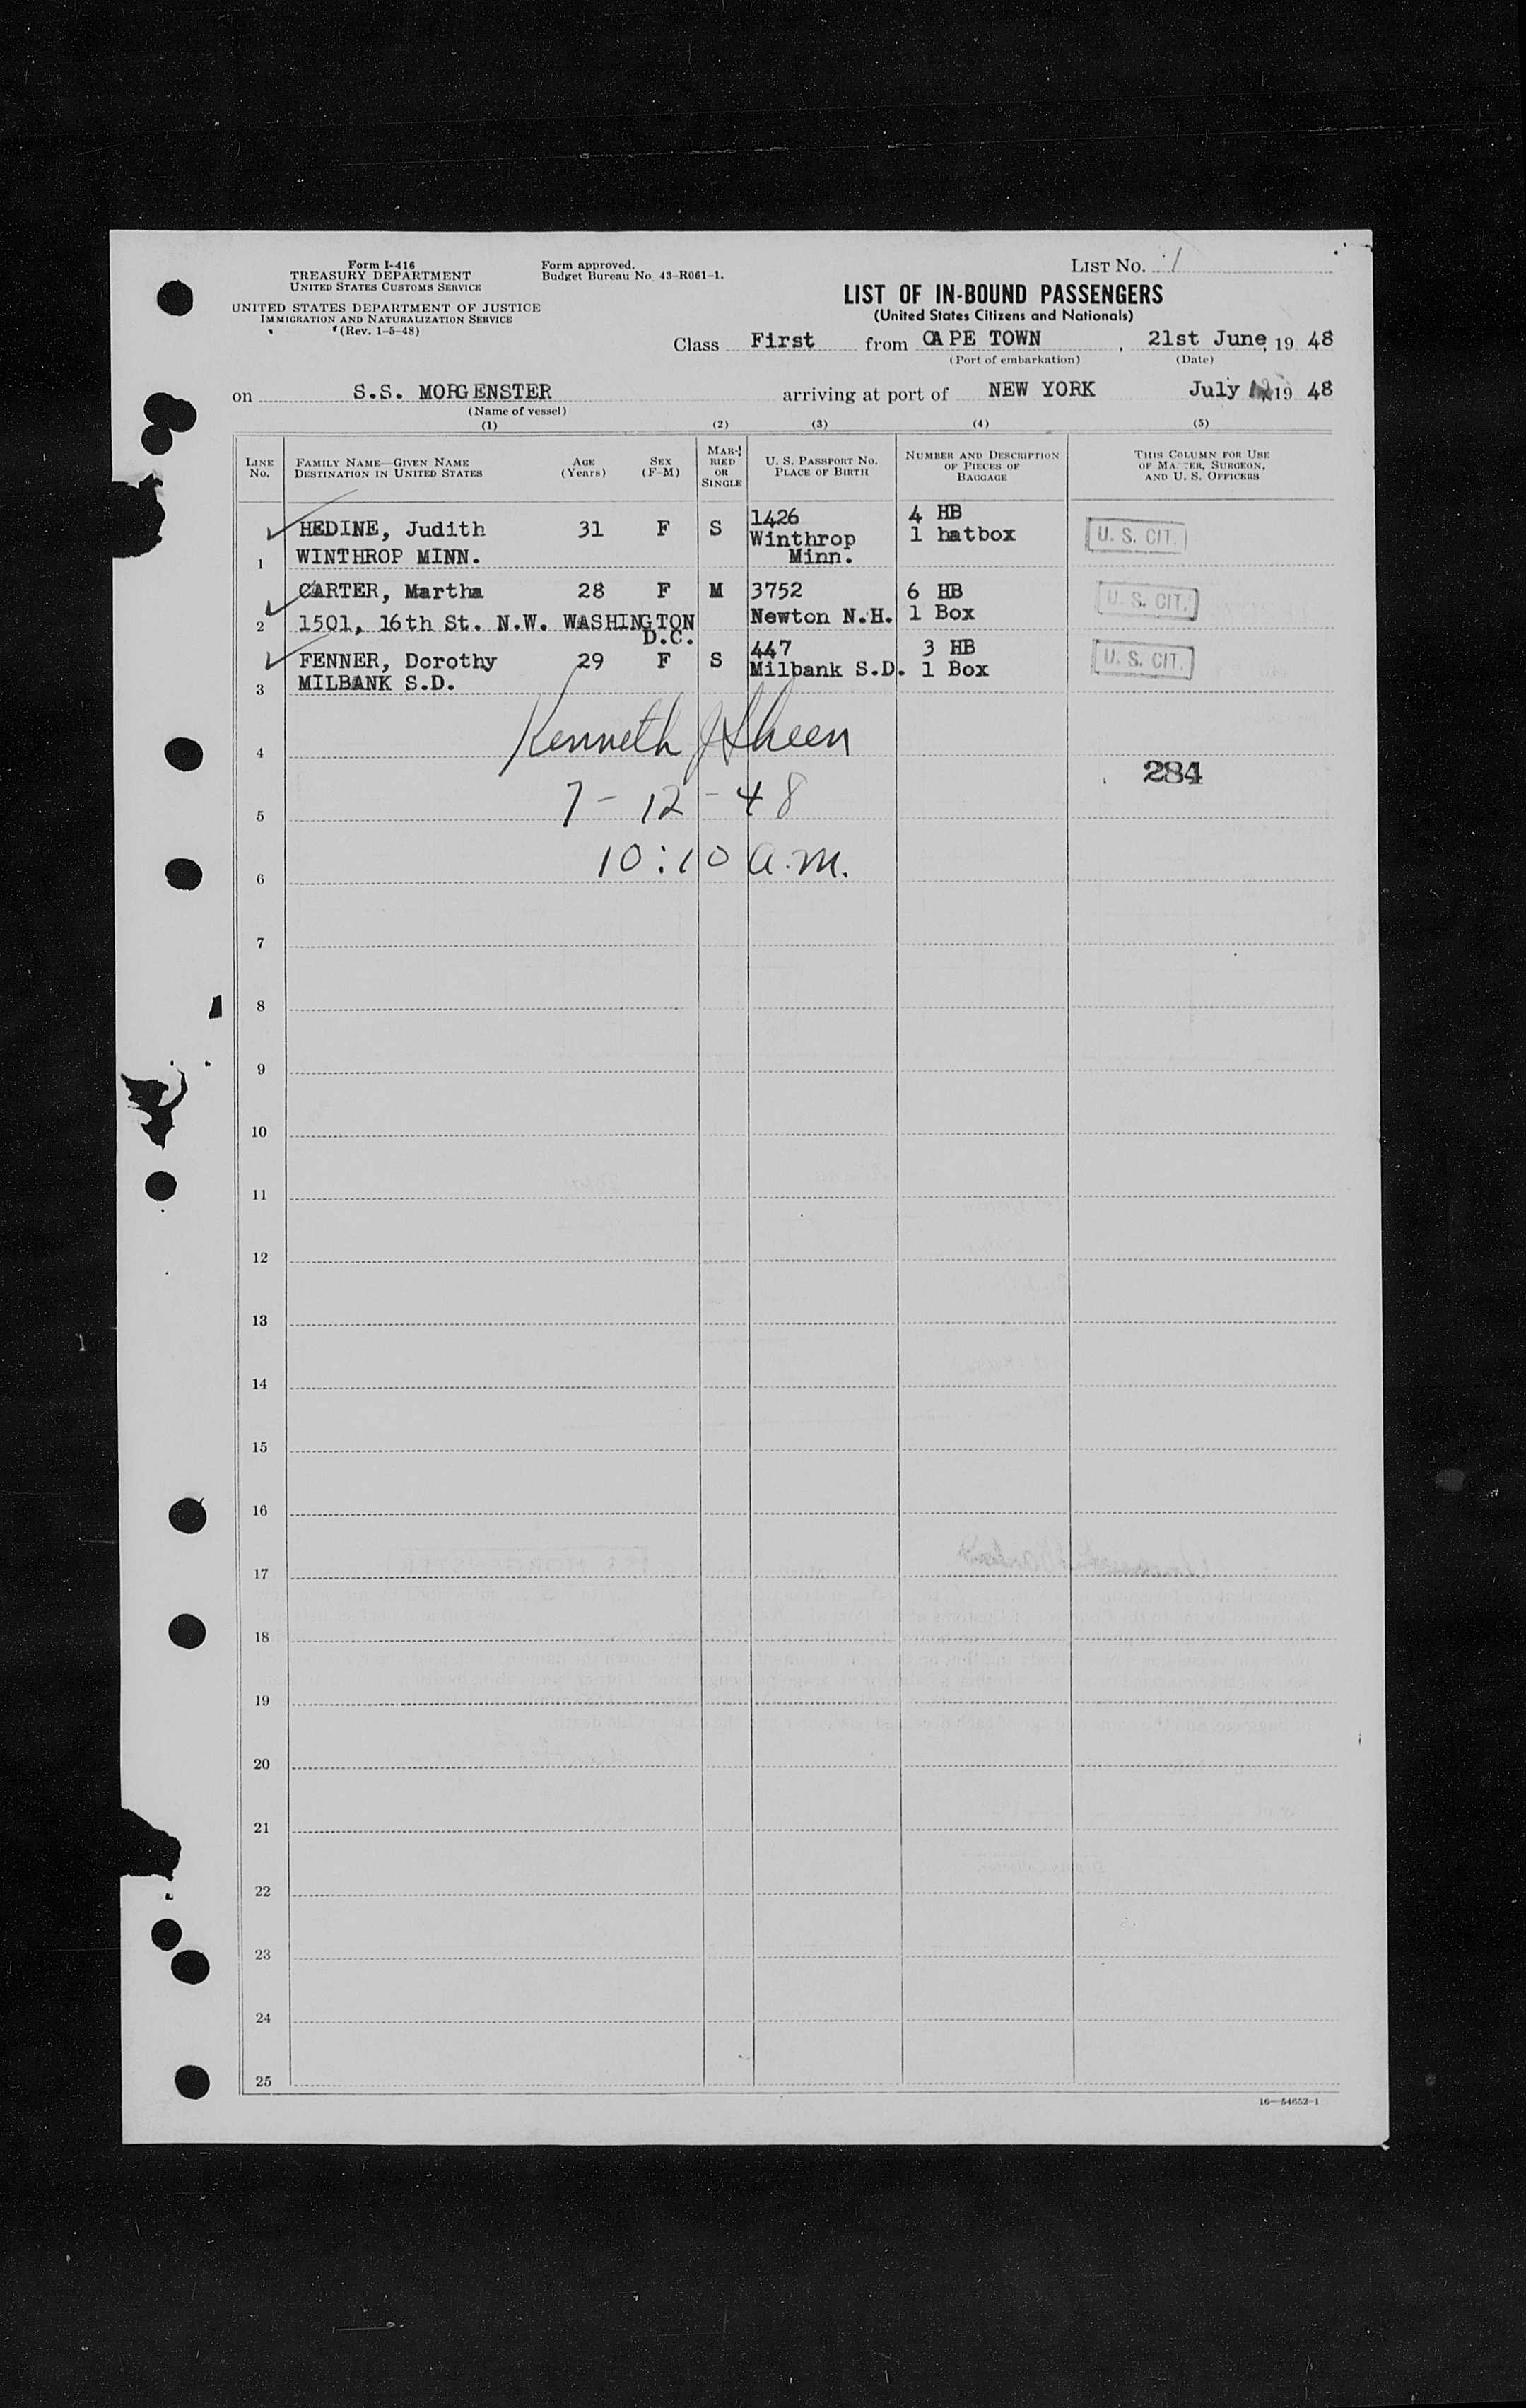 Form I-416
TREASURY DEPARTMENT
UNITED STATES CUSTOMS SERVICE
UNITED STATES DEPARTMENT OF JUSTICE
IMMIGRATION AND NATURALIZATION SERVICE
(Rev. 1-5-48)
Form approved.
Budget Bureau No. 43-R061-1.
LIST NO. 1
LIST OF IN-BOUND PASSENGERS
(United States Citizens and Nationals)
Class First from CAPE TOWN, 21st June, 19 48
(Port of embarkation) (Date)
on S.S. MORGENSTER arriving at port of NEW YORK July 19 48
(Name of vessel)
(1) (2) (3) (4) (5)
LINE NO.
FAMILY NAME—GIVEN NAME
DESTINATION IN UNITED STATES
AGE (Years)
SEX (F-M)
MARRIED OR SINGLE
U. S. PASSPORT NO.
PLACE OF BIRTH
NUMBER AND DESCRIPTION OF PIECES OF BAGGAGE
THIS COLUMN FOR USE OF MASTER, SURGEON, AND U. S. OFFICERS
HEDINE, Judith 31 F S 1426 4 HB U. S. CIT.
1 WINTHROP MINN. Winthrop Minn. 1 hatbox
CARTER, Martha 28 F M 3752 6 HB U. S. CIT.
2 1501, 16th St. N.W. WASHINGTON D.C. Newton N.H. 1 Box
FENNER, Dorothy 29 F S 447 3 HB U. S. CIT.
3 MILBANK S.D. Milbank S.D. 1 Box
Kenneth J Sheen
4
284
7-12-48
5
10:10 a.m.
6
7
8
9
10
11
12
13
14
15
16
17
18
19
20
21
22
23
24
25
16—54652-1